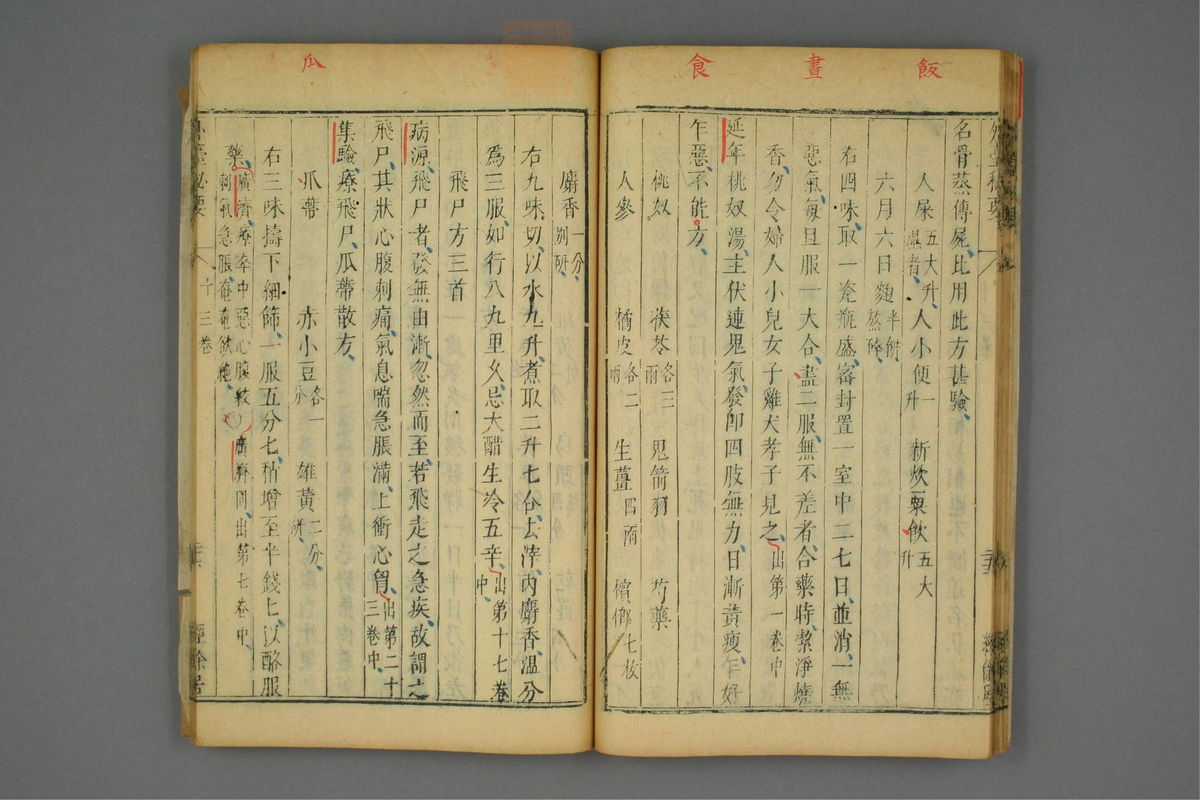 飯
晝
食
瓜
外臺秘要
名骨蒸傳屍比用此方甚驗
人屎五大升濕者人小便一升新炊粟飲五大升
六月六日麴半餅熬降
右四味取一瓷瓶盛密封置一室中二七日並消一無
惡氣每旦服一大合盡二服無不差者合藥時潔淨燒
香勿令婦人小兒女子雞犬孝子見之出第一卷中
延年桃奴湯主伏連鬼氣發即四肢無力日漸黃瘦乍好
乍惡不能方
桃奴 茯苓各三兩 鬼箭羽 芍藥
人參 橘皮各二兩 生薑四兩 檳榔七枚
麝香一分別研
右九味切以水九升煮取二升七合去滓內麝香溫分
為三服如行八九里久忌大酷生冷五辛出第十七卷中
飛尸方三首
病源飛尸者發無由漸忽然而至若飛走之急疾故謂之
飛尸其狀心腹刺痛氣息喘急脹滿上衝心胷出第二十三卷中
集驗療飛尸瓜蔕散方
瓜蔕 赤小豆各一分 雄黃二分研
右三味擣下細篩一服五分七稍增至半錢匕以酪服
藥廣濟療卒中惡心腹絞刺氣急脹奄奄欲絕廣濟同出第七卷中
外臺秘要 十三卷 經餘居